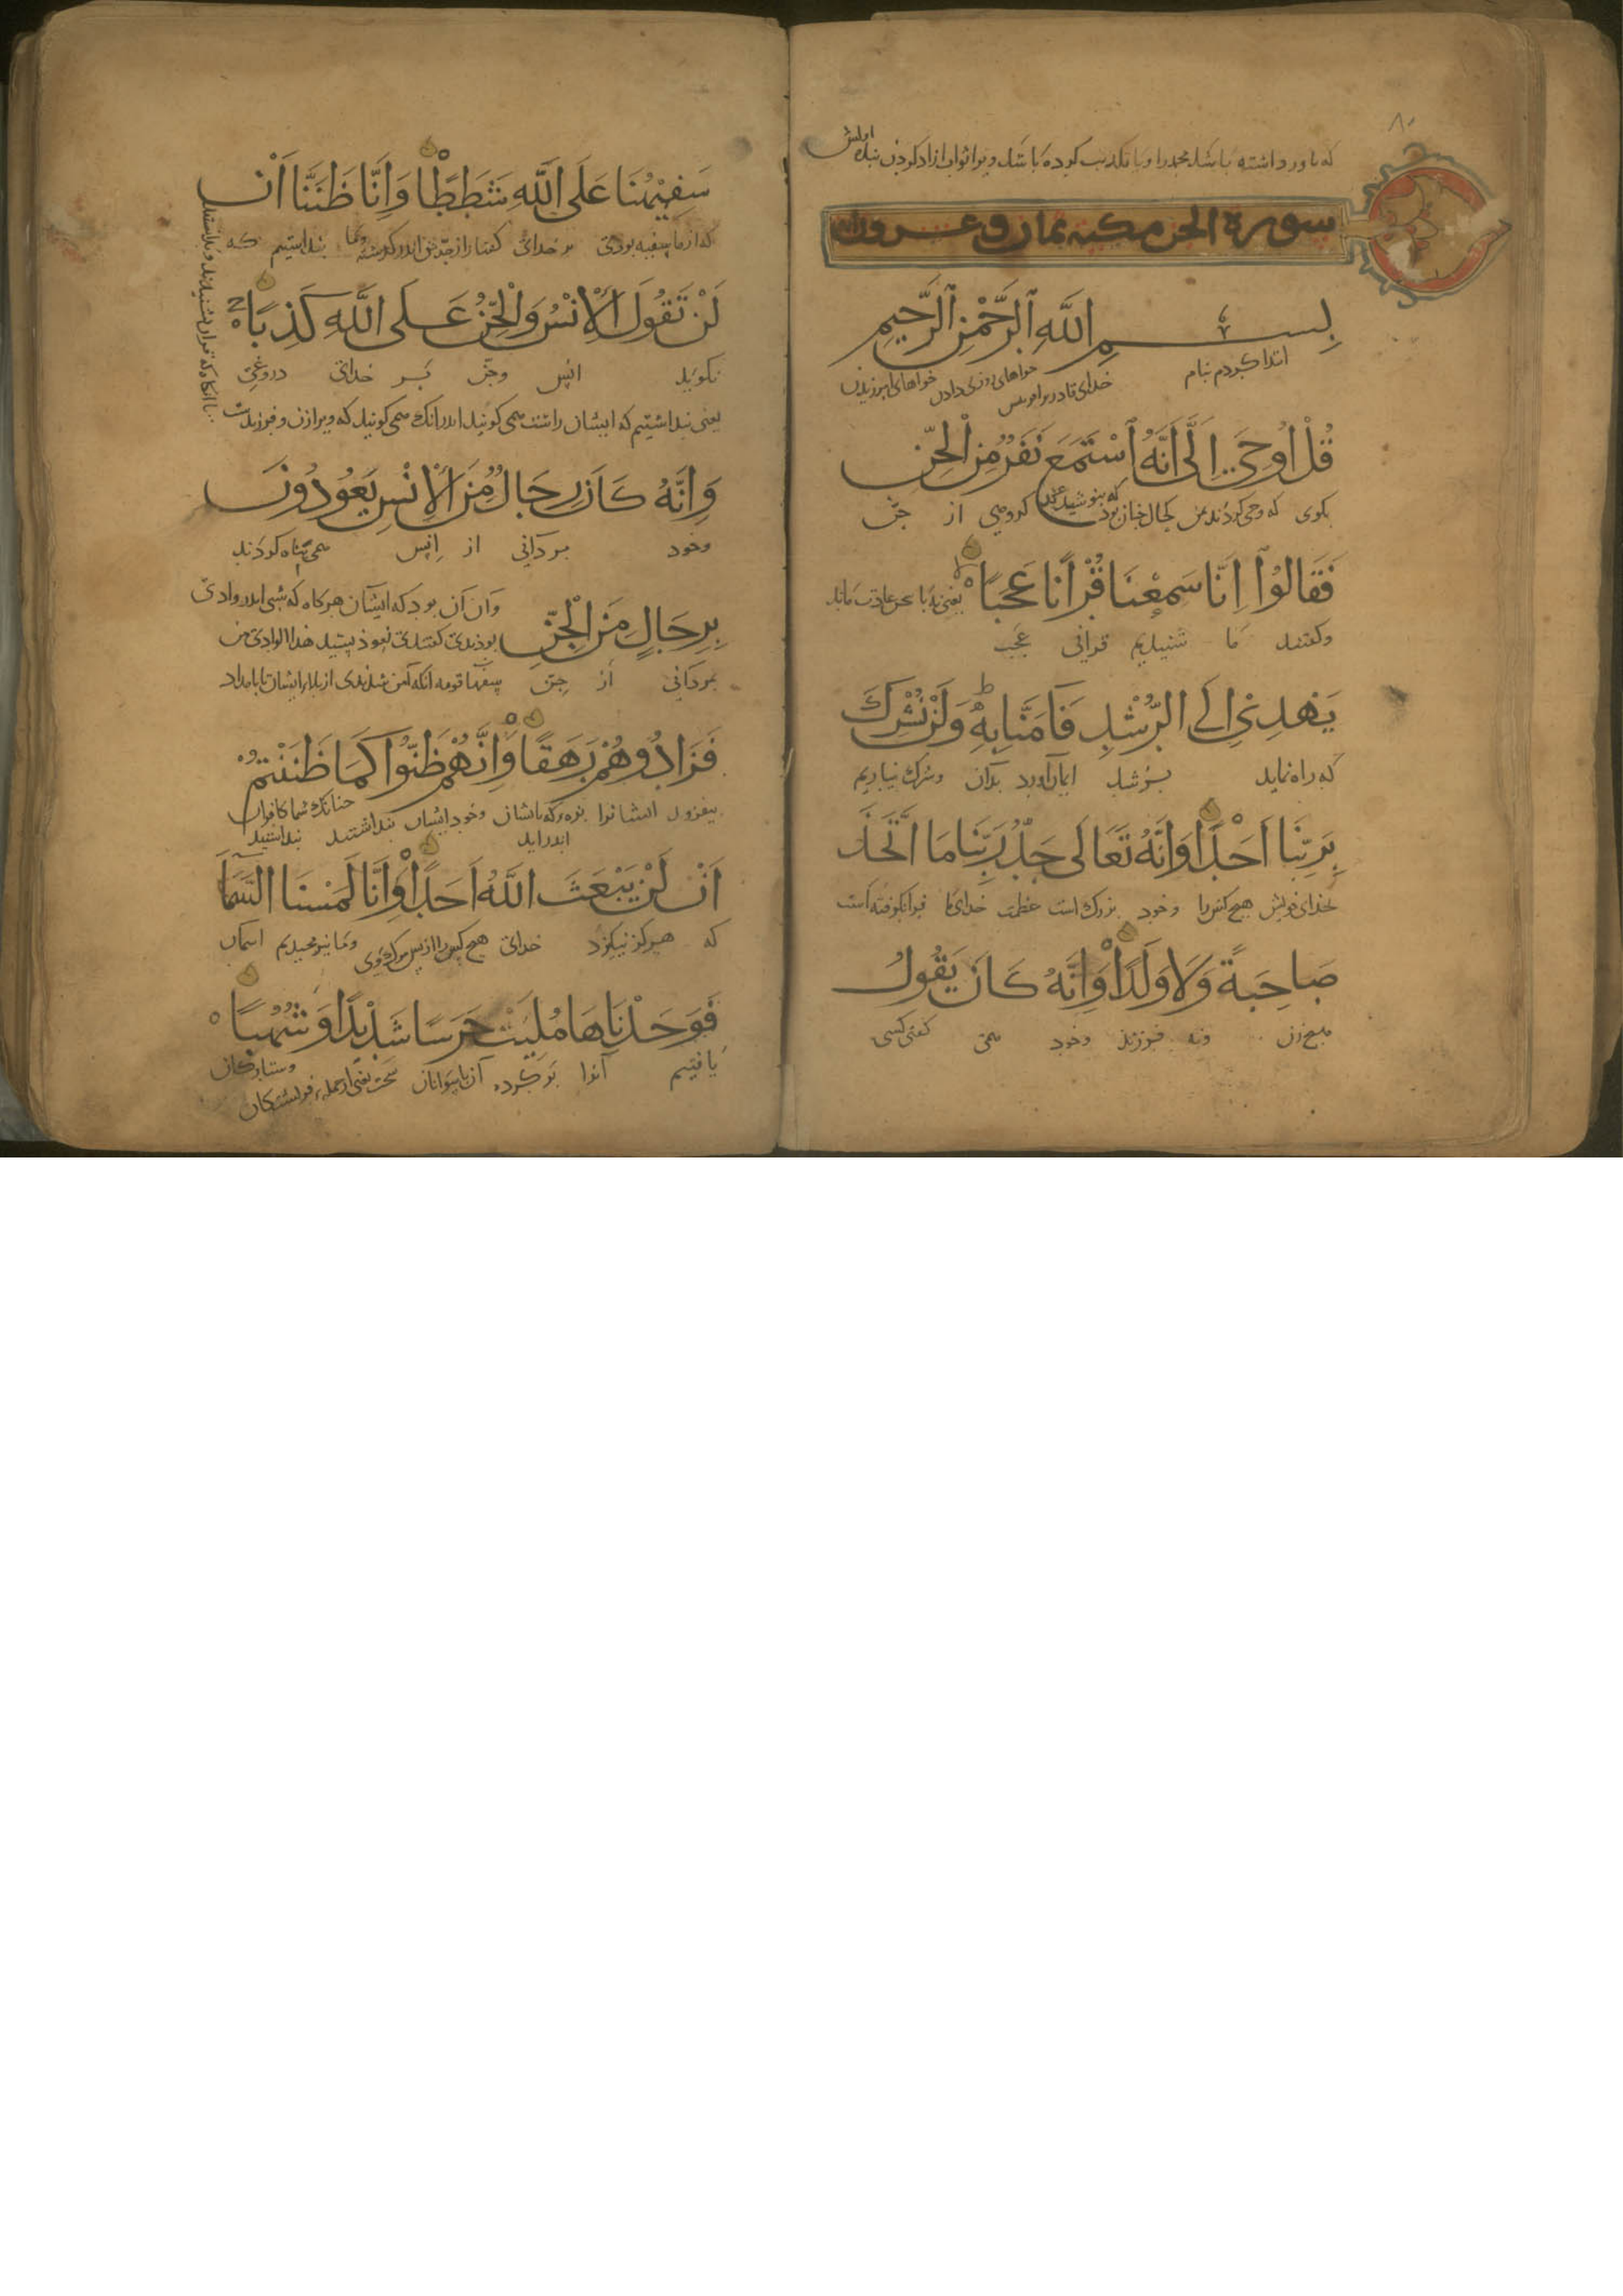 که باور داشته باشد محمد را و یا تکذیب کرده باشد ویرا ثواب آزاد کردن بنده
سورة الجن مکیة ثمان وعشرون
بِسْمِ اللَّهِ الرَّحْمٰنِ الرَّحِيمِ
ابتدا کردم بنام خدای قادر بر آفرینش خواهای روزی دادن خواهای آمرزیدن
قُلْ اُوحِيَ اِلَيَّ اَنَّهُ اسْتَمَعَ نَفَرٌ مِنَ الْجِنِّ
بکوی که وحی کردند بمن که بنوشیدند کروهی از جن
فَقَالُوا اِنَّا سَمِعْنَا قُرْاٰنًا عَجَبًا
وکفتند ما شنیدیم قرآنی عجب
يَهْدِي اِلَى الرُّشْدِ فَاٰمَنَّا بِهِ ط وَلَنْ نُشْرِكَ
که راه نماید برشد ایمان آورد بدان وشرک نیاریم
بِرَبِّنَا اَحَدًا وَاَنَّهُ تَعَالَى جَدُّ رَبِّنَا مَا اتَّخَذَ
بخدای خویش هیچ کس را وخود بزرک است عظمت خدای ما فرانکرفته است
صَاحِبَةً وَلَا وَلَدًا وَاَنَّهُ كَانَ يَقُولُ
هیچ زن ونه فرزند وخود همی کفتی کسی
سَفِيهُنَا عَلَى اللَّهِ شَطَطًا وَاَنَّا ظَنَنَّا اَنْ
که از ما سفیه بودی بر خدای کفتار از حد اندر کذشته وما بنداشتیم که
لَنْ تَقُولَ الْاِنْسُ وَالْجِنُّ عَلَى اللَّهِ كَذِبًا
نکویند انس وجن بر خدای دروغی
یعنی بنداشتیم که ایشان راست همی کویند اندرانک همی کویند که ویرا زن و فرزندست
وَاَنَّهُ كَانَ رِجَالٌ مِنَ الْاِنْسِ يَعُوذُونَ
وخود مردانی از انس همی پناه کردند
بِرِجَالٍ مِنَ الْجِنِّ وآن آن بود که ایشان هرکاه که شبی اندر وادی
بمردانی از جن
فَزَادُوهُمْ رَهَقًا وَاَنَّهُمْ ظَنُّوا كَمَا ظَنَنْتُمْ
بیفزود ایشانرا بزه وخود ایشان بنداشتند چنانک شما کافران بنداشتید
اَنْ لَنْ يَبْعَثَ اللَّهُ اَحَدًا وَاَنَّا لَمَسْنَا السَّمَاءَ
که هرکز نیکیزد خدای هیچ کس را از پس مرک وی وما اسمان
فَوَجَدْنَاهَا مُلِئَتْ حَرَسًا شَدِيدًا وَشُهُبًا
یافتیم آنرا پر کرده از پاسوانان سخت یعنی از جمله فریشتکان وستارکان